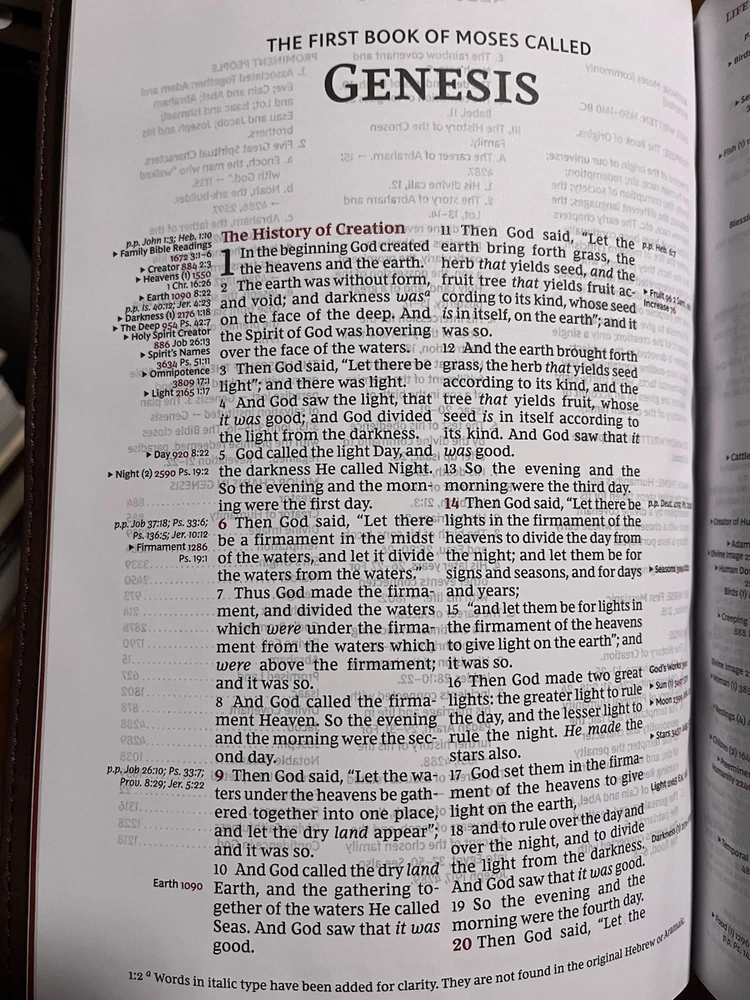 THE FIRST BOOK OF MOSES CALLED
GENESIS
p.p. John 1:3; Heb. 1:10
▶ Family Bible Readings
1672 3:1–6
▶ Creator 884 2:3
▶ Heavens (1) 1550
1 Chr. 16:26
▶ Earth 1090 8:22
p.p. Is. 40:12; Jer. 4:23
▶ Darkness (1) 2176 1:18
▶ The Deep 954 Ps. 42:7
▶ Holy Spirit Creator
886 Job 26:13
▶ Spirit's Names
3634 Ps. 51:11
▶ Omnipotence
3809 17:1
▶ Light 2165 1:17
▶ Day 920 8:22
▶ Night (2) 2590 Ps. 19:2
p.p. Job 37:18; Ps. 33:6;
Ps. 136:5; Jer. 10:12
▶ Firmament 1286
Ps. 19:1
p.p. Job 26:10; Ps. 33:7;
Prov. 8:29; Jer. 5:22
Earth 1090
The History of Creation
1 In the beginning God created
the heavens and the earth.
2 The earth was without form,
and void; and darkness was a
on the face of the deep. And
the Spirit of God was hovering
over the face of the waters.
3 Then God said, “Let there be
light”; and there was light.
4 And God saw the light, that
it was good; and God divided
the light from the darkness.
5 God called the light Day, and
the darkness He called Night.
So the evening and the morn-
ing were the first day.
6 Then God said, “Let there
be a firmament in the midst
of the waters, and let it divide
the waters from the waters.”
7 Thus God made the firma-
ment, and divided the waters
which were under the firma-
ment from the waters which
were above the firmament;
and it was so.
8 And God called the firma-
ment Heaven. So the evening
and the morning were the sec-
ond day.
9 Then God said, “Let the wa-
ters under the heavens be gath-
ered together into one place,
and let the dry land appear”;
and it was so.
10 And God called the dry land
Earth, and the gathering to-
gether of the waters He called
Seas. And God saw that it was
good.
11 Then God said, “Let the
earth bring forth grass, the
herb that yields seed, and the
fruit tree that yields fruit ac-
cording to its kind, whose seed
is in itself, on the earth”; and it
was so.
12 And the earth brought forth
grass, the herb that yields seed
according to its kind, and the
tree that yields fruit, whose
seed is in itself according to
its kind. And God saw that it
was good.
13 So the evening and the
morning were the third day.
14 Then God said, “Let there be
lights in the firmament of the
heavens to divide the day from
the night; and let them be for
signs and seasons, and for days
and years;
15 “and let them be for lights in
the firmament of the heavens
to give light on the earth”; and
it was so.
16 Then God made two great
lights: the greater light to rule
the day, and the lesser light to
rule the night. He made the
stars also.
17 God set them in the firma-
ment of the heavens to give
light on the earth,
18 and to rule over the day and
over the night, and to divide
the light from the darkness.
And God saw that it was good.
19 So the evening and the
morning were the fourth day.
20 Then God said, “Let the
p.p. Heb. 6:7
▶ Fruit
Increase
p.p. Deut.
▶ Seasons
God's Works
▶ Sun (1)
▶ Moon
▶ Stars
Light
Darkness (1)
1:2 a Words in italic type have been added for clarity. They are not found in the original Hebrew or Aramaic.